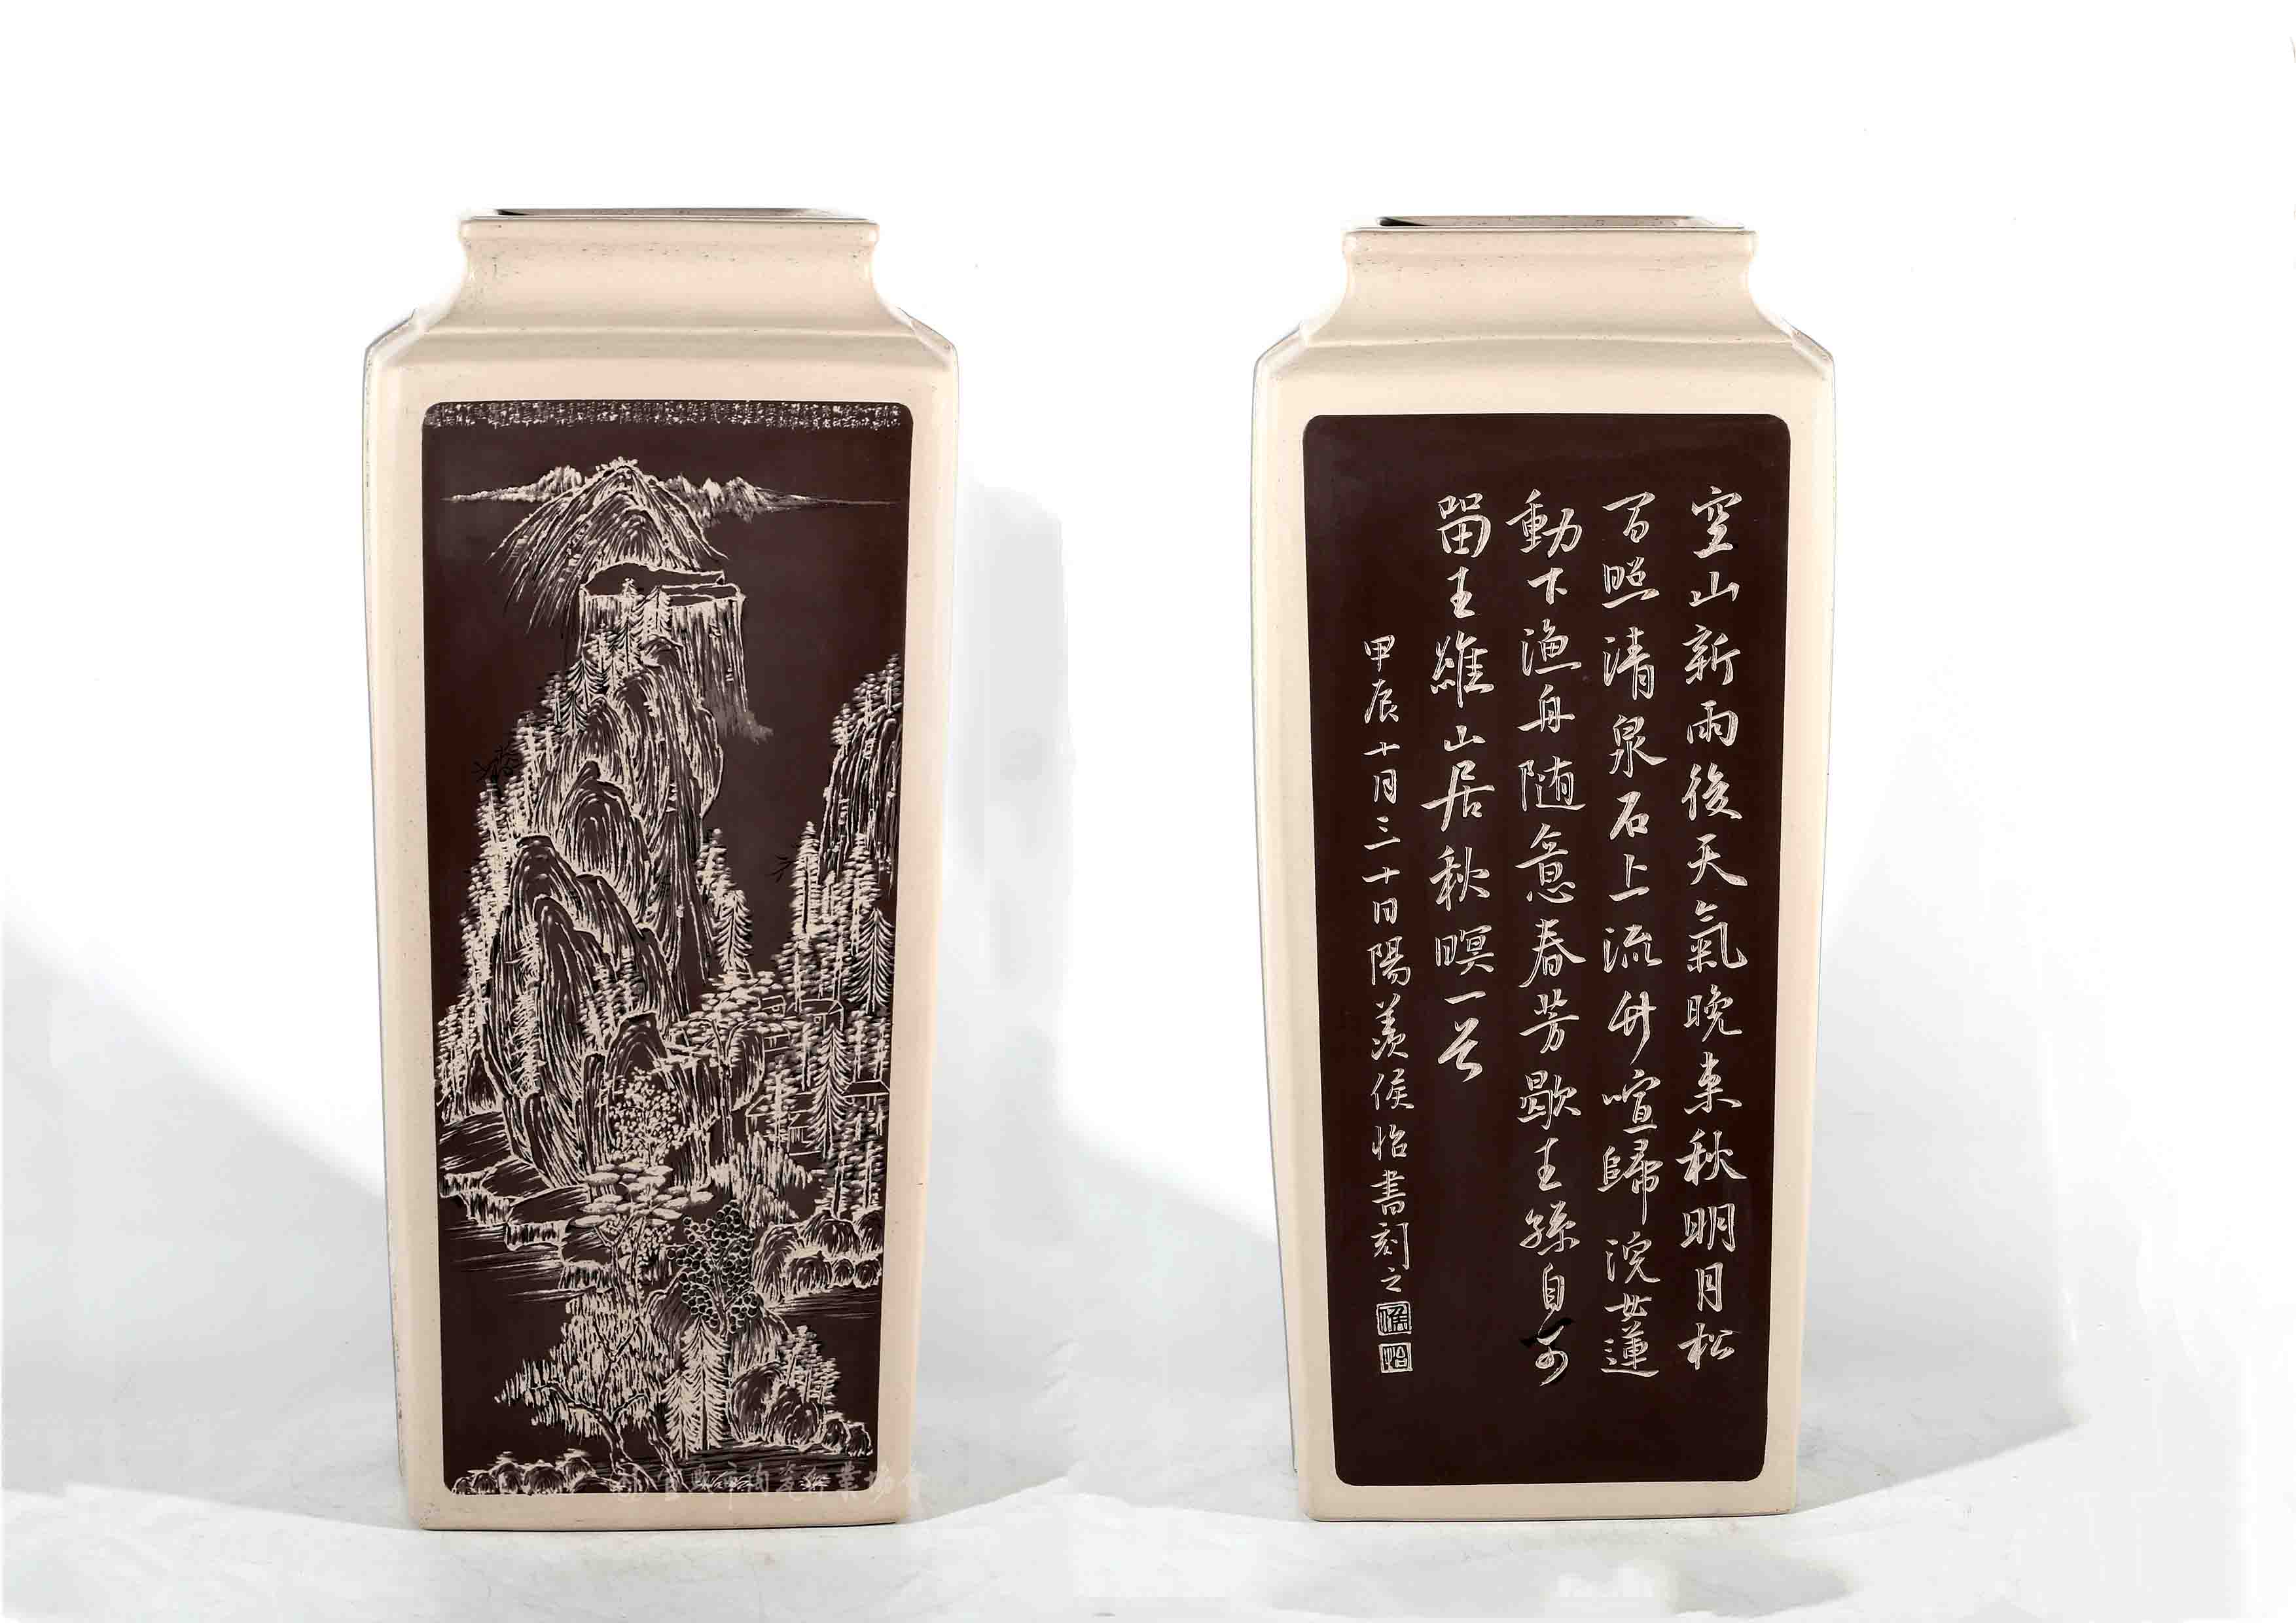 空山新雨後天氣晚来秋明月松
間照清泉石上流竹喧歸浣女蓮
動下漁舟随意春芳歇王孫自可
畱王維山居秋暝一首
甲辰十月三十日陽羨侯怡書刻之
宜興市陶瓷行業協會